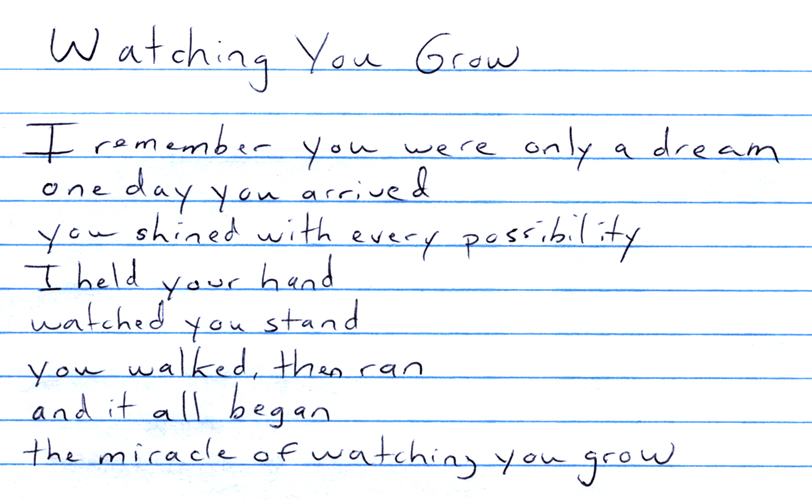 Watching You Grow
I remember you were only a dream
one day you arrived
you shined with every possibility
I held your hand
watched you stand
you walked, then ran
and it all began
the miracle of watching you grow